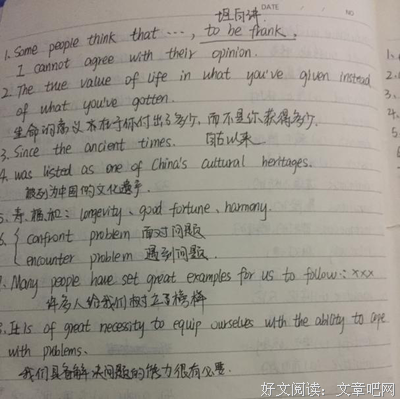 坦白讲
DATE
NO
1. Some people think that ···, to be frank,
I cannot agree with their opinion.
2. The true value of life in what you've given instead
of what you've gotten.
生命的意义不在于你付出了多少,而不是你获得多少.
3. Since the ancient times. 自古以来
4. was listed as one of China's cultural heritages.
被列为中国的文化遗产.
5. 寿.福.和: longevity、good fortune、harmony.
6. { confront problem 面对问题
encounter problem 遇到问题.
7. Many people have set great examples for us to follow: xxx
许多人给我们树立了榜样
8. It is of great necessity to equip ourselves with the ability to cope
with problems.
我们具备解决问题的能力很有必要.
好文阅读:文章吧网